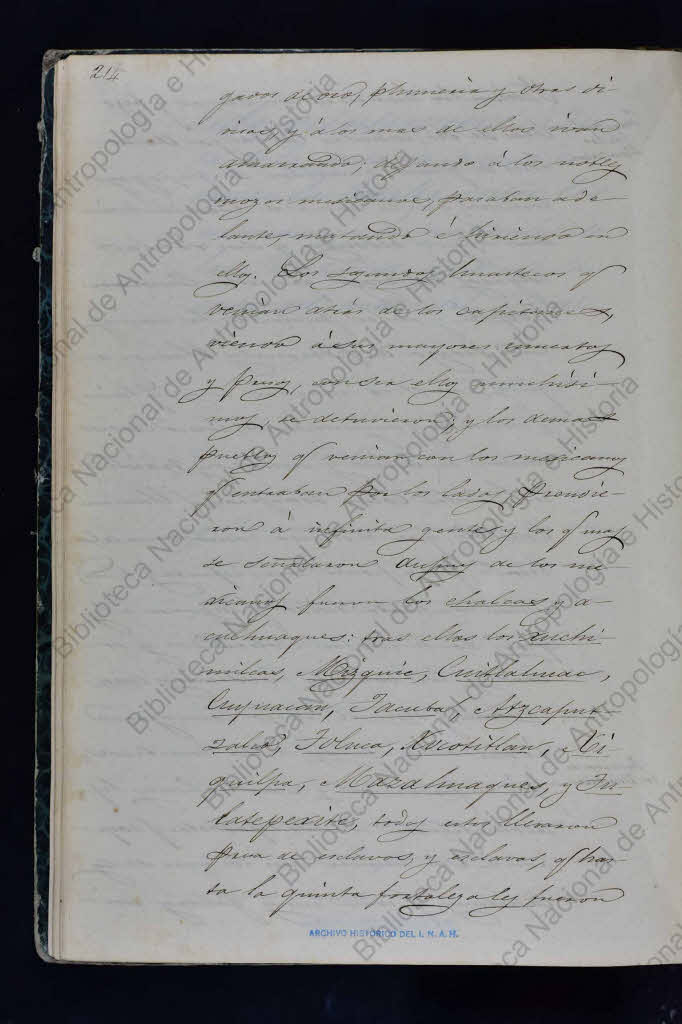 214
gados de oro, plumeria y otras di-
visas, y á los mas de ellos ivan
amarrando, dejando á los nobles
mozos mexicanos, pasaban ade-
lantes matando é hiriendo en
ellos. Los segundos huastecos q.
venian atras de los capitanes,
viendo á sus mayores muertos
y presos, con ser ellos muchisi-
mos, se detuvieron, y los demas
pueblos q. venian con los mexicanos
q. entraban por los lados prendie-
ron á infinita gente, y los q. mas
se señalaron despues de los me-
xicanos fueron los chalcas, y a-
culhuaques: tras ellos los xuchi-
milcas, Mizquic, Cuitlahuac,
Cuyuacan, Tacuba, Atzcaput-
zalco, Toluca, Xocotitlan, Xi-
quilpa, Mazahuaques, y Tu-
latepexic, todos estos llevaron
presa de esclavos, y esclavas, q. has-
ta la quinta fortaleza les fueron
ARCHIVO HISTÓRICO DEL I. N. A. H.
Biblioteca Nacional de Antropología e Historia